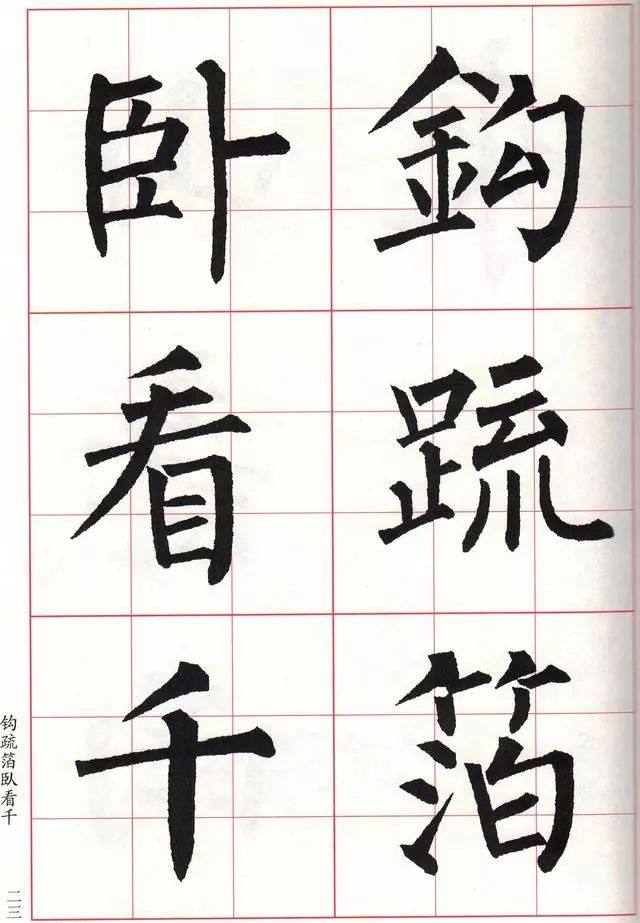 鈎疏箔
卧看千
钩疏箔卧看千
二三三